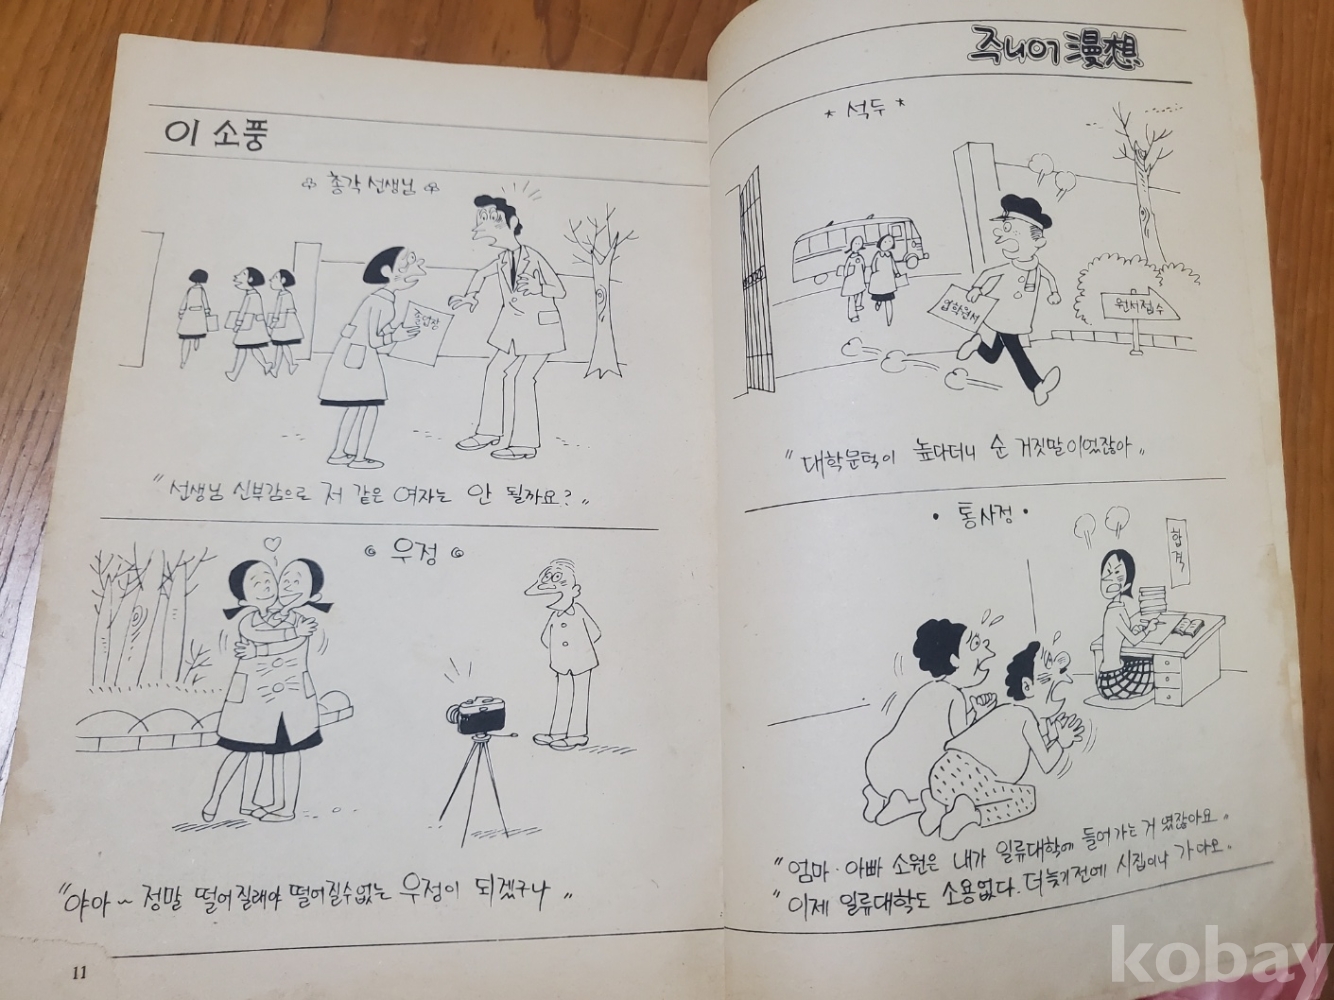 이 소풍
총각 선생님
졸업장
"선생님 신부감으로 저 같은 여자는 안 될까요?"
우정
"야아~ 정말 떨어질래야 떨어질수없는 우정이 되겠구나"
11
주니어 漫想
석두
입학원서
원서접수
"대학문턱이 높다더니 순 거짓말이었잖아"
통사정
합격
"엄마·아빠 소원은 내가 일류대학에 들어가는 거 였잖아요."
"이제 일류대학도 소용없다. 더늦기전에 시집이나 가다오."
kobay